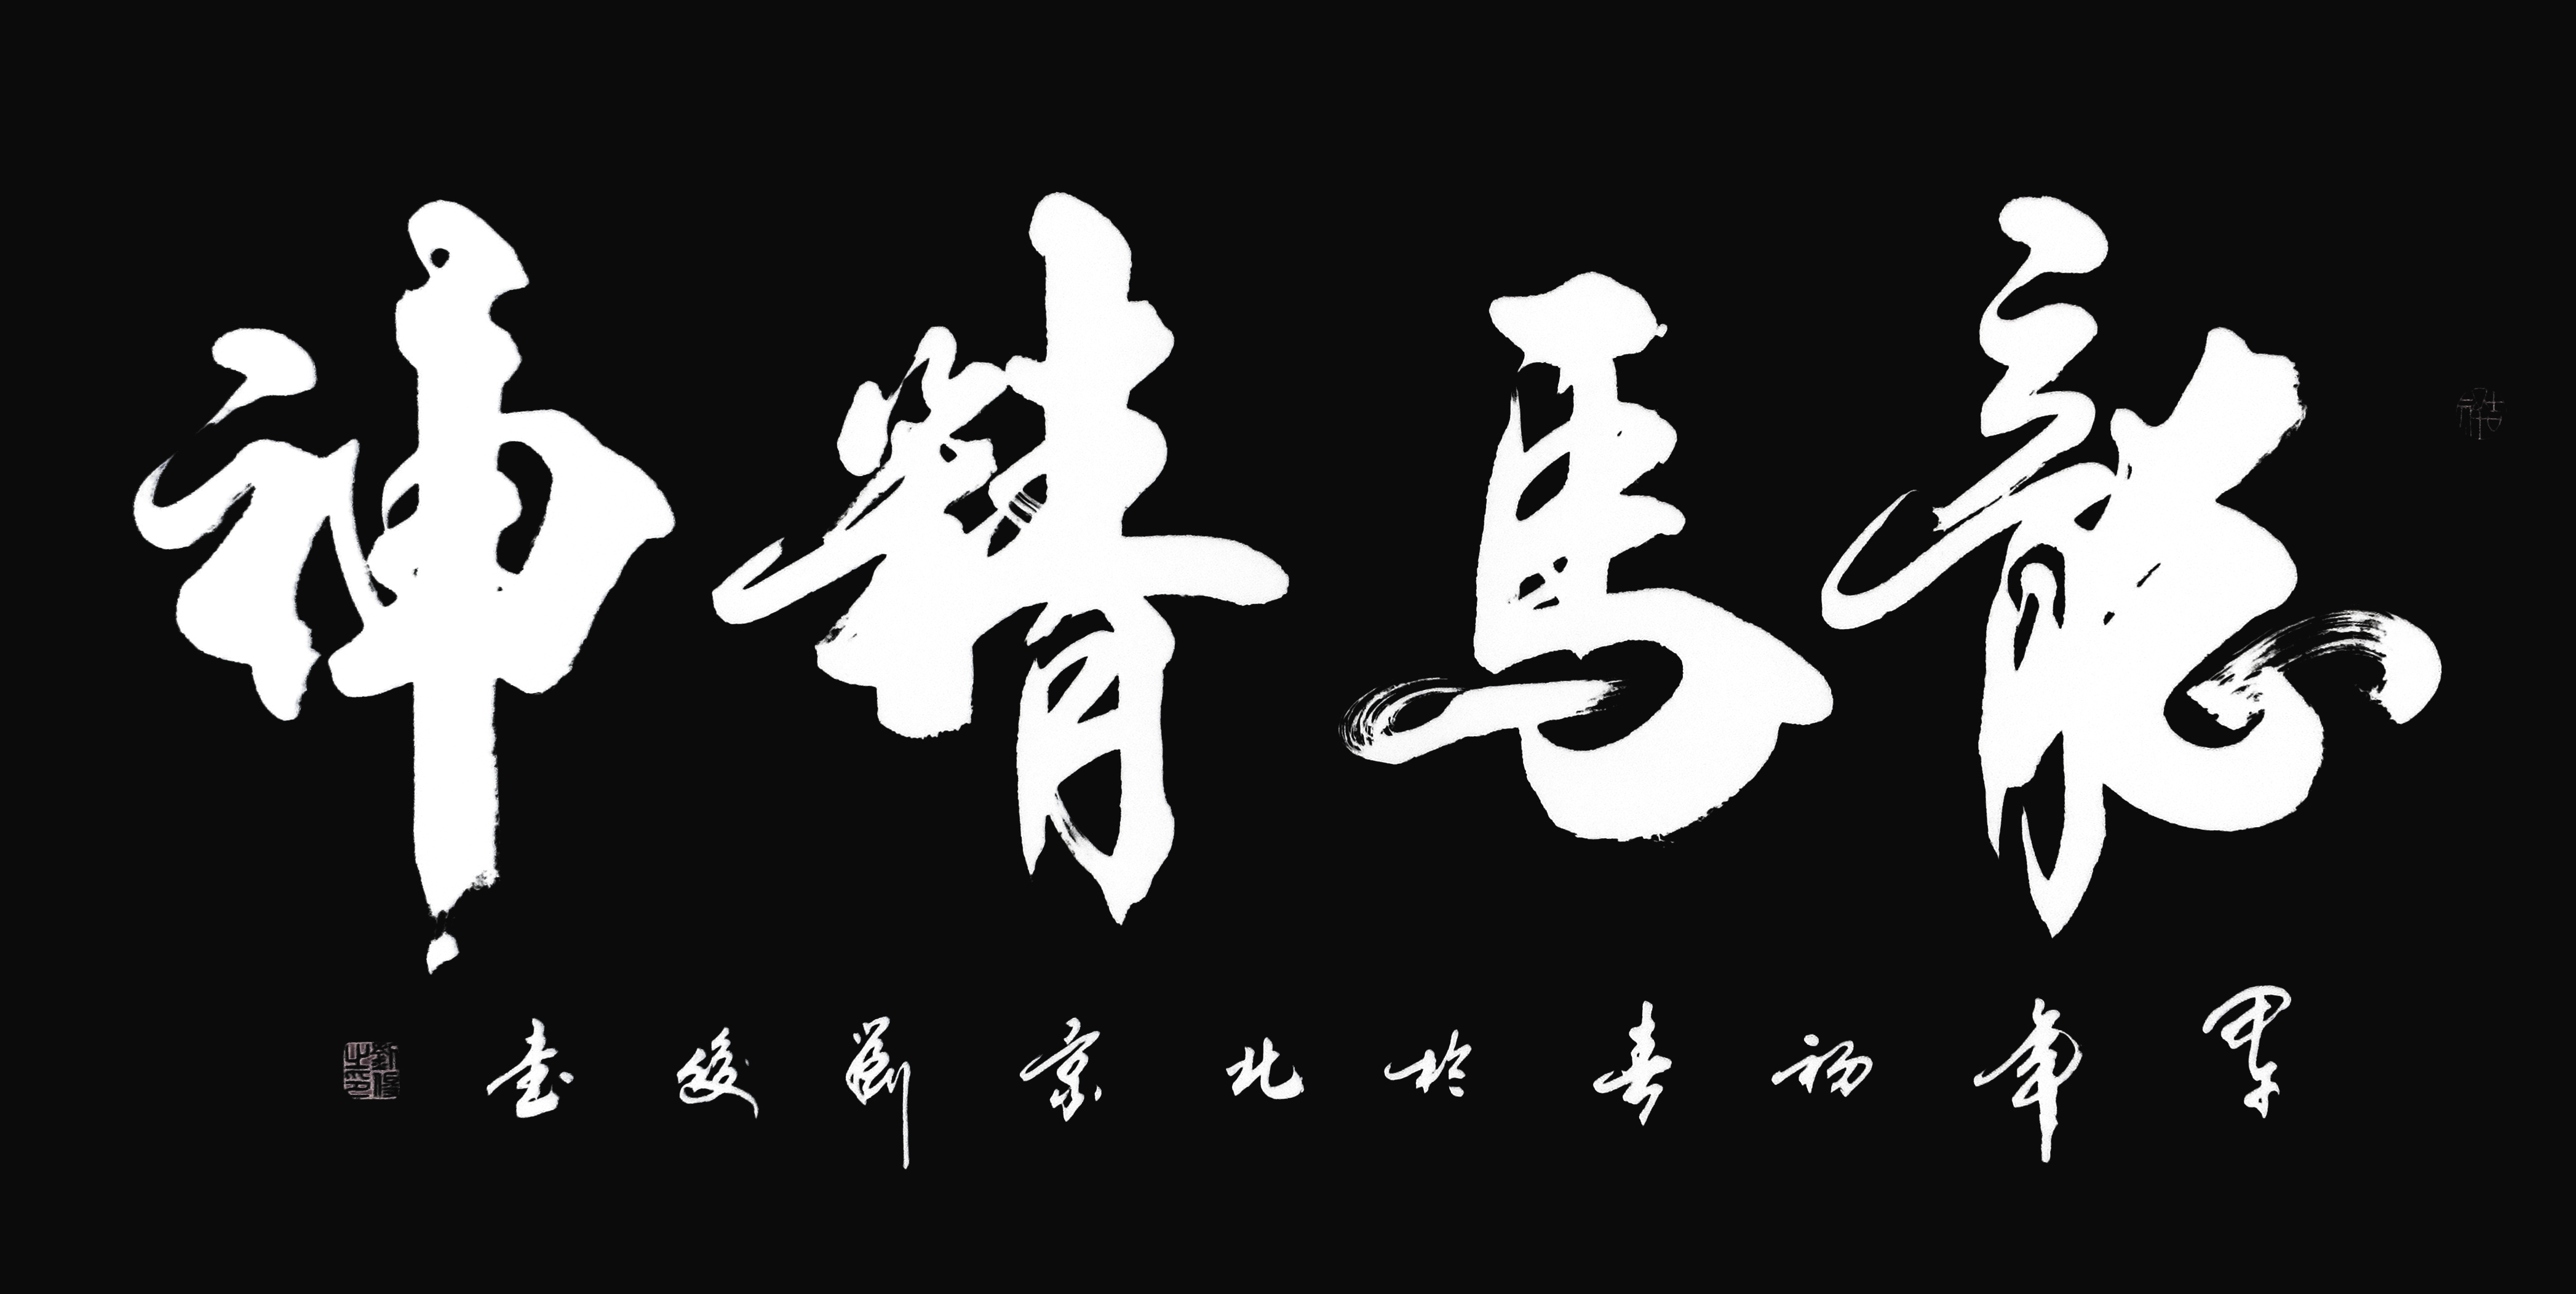 龍馬精神
甲午年初春於北京劉俊書